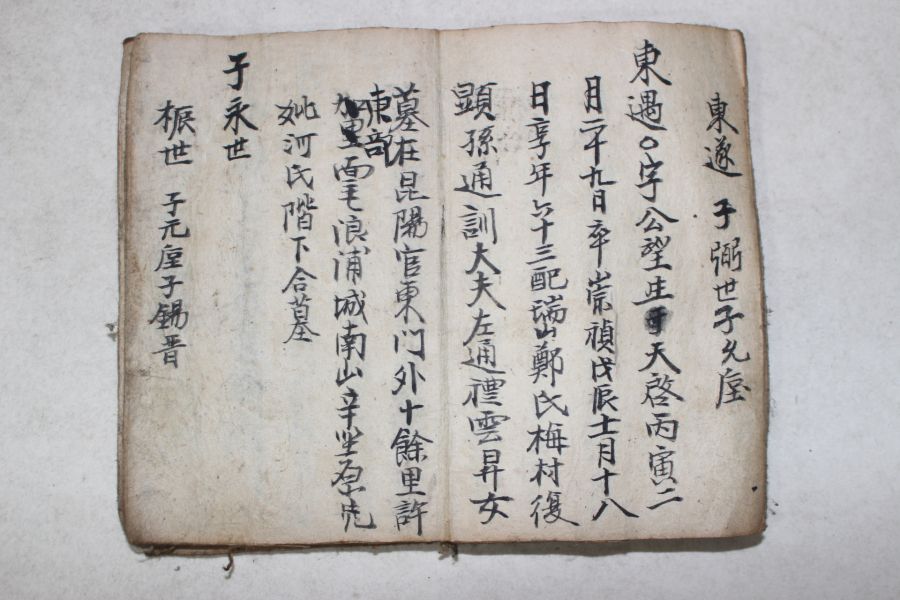 東遂 子弼世子允垕
東遇〇字公望生于天啓丙寅二
月二十九日卒崇禎戊辰十二月十八
日享年六十三配瑞山鄭氏梅村復
顯孫通訓大夫左通禮雲昇女
墓在昆陽官東門外十餘里許
東部面毛浪浦城南山辛坐原先
妣河氏階下合墓
子永世
振世 子元垕子錫晋